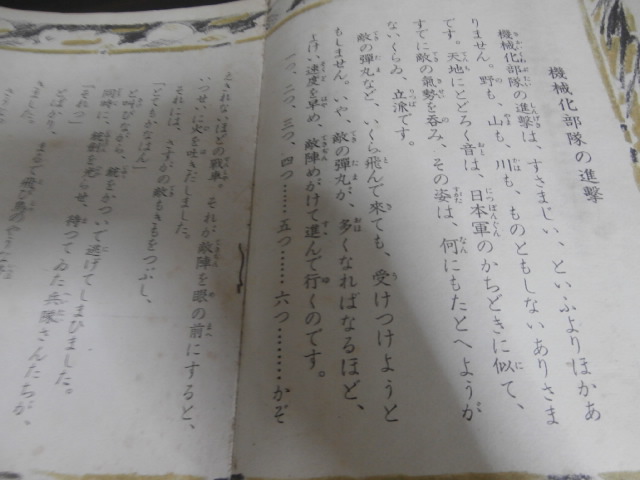 機械化部隊の進撃
機械化部隊の進撃は、すさまじい、といふよりほかあ
りません。野も、山も、川も、ものともしないありさま
です。天地にとどろく音は、日本軍のかちどきに似て、
すでに敵の氣勢を呑み、その姿は、何にもたとへようが
ないくらゐ、立派です。
敵の彈丸など、いくら飛んで来ても、受けつけようと
もしません。いや、敵の彈丸が、多くなればなるほど、
よけい速度を早め、敵陣めがけて進んで行くのです。
一つ、二つ、三つ、四つ……五つ……六つ………かぞ
へきれないほどの戦車。それが敵陣を眼の前にすると、
いつせいに火を吐きだしました。
それには、さすがの敵もきもをつぶし、
「とてもかなはん」
と叫びながら、銃をかついで逃げてしまひました。
「それつ」
同時に、銃劍を光らせ、待つてゐた兵隊さんたちが、
とばかり、まるで飛鳥のやうな
きました。